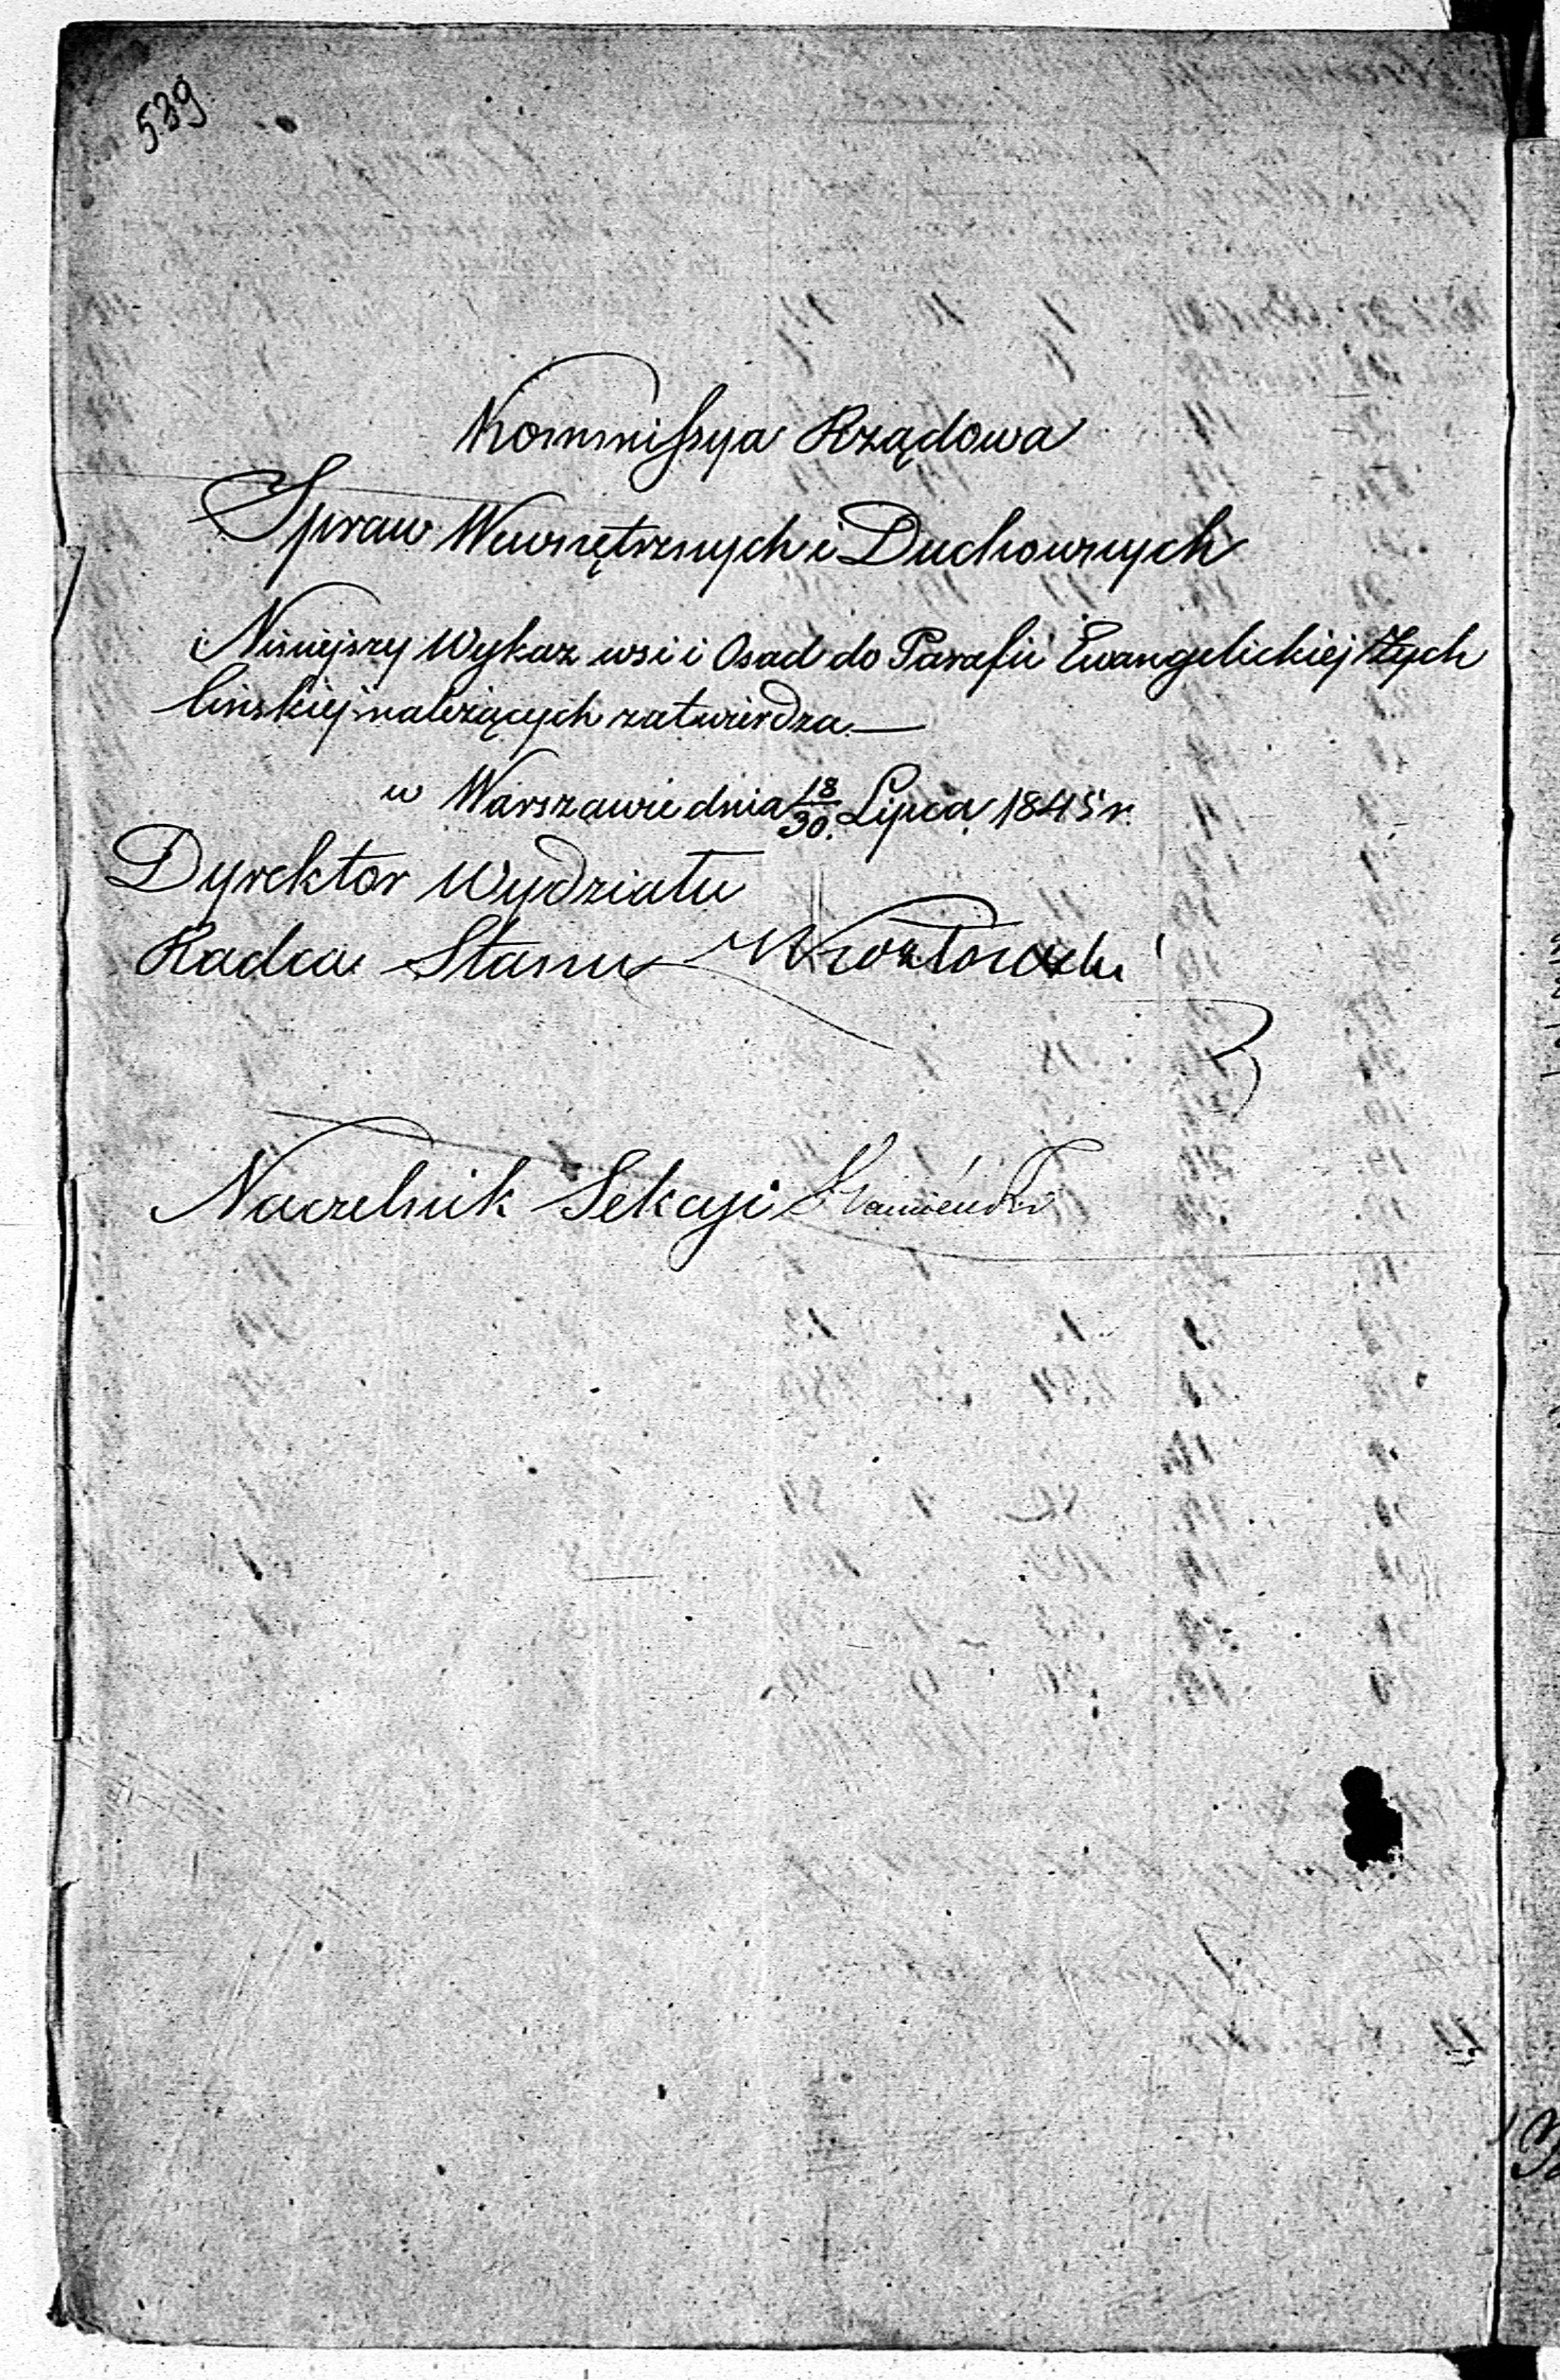 539
Kommissya Rządowa
Spraw Wewnętrznych i Duchownych
Niniejszy Wykaz wsi i Osad do Parafii Ewangelickiej Żych
lińskiej należących zatwierdza —
w Warszawie dnia 18/30. Lipca 1845 r.
Dyrektor Wydziału
Radca Stanu
Naczelnik Sekcyi